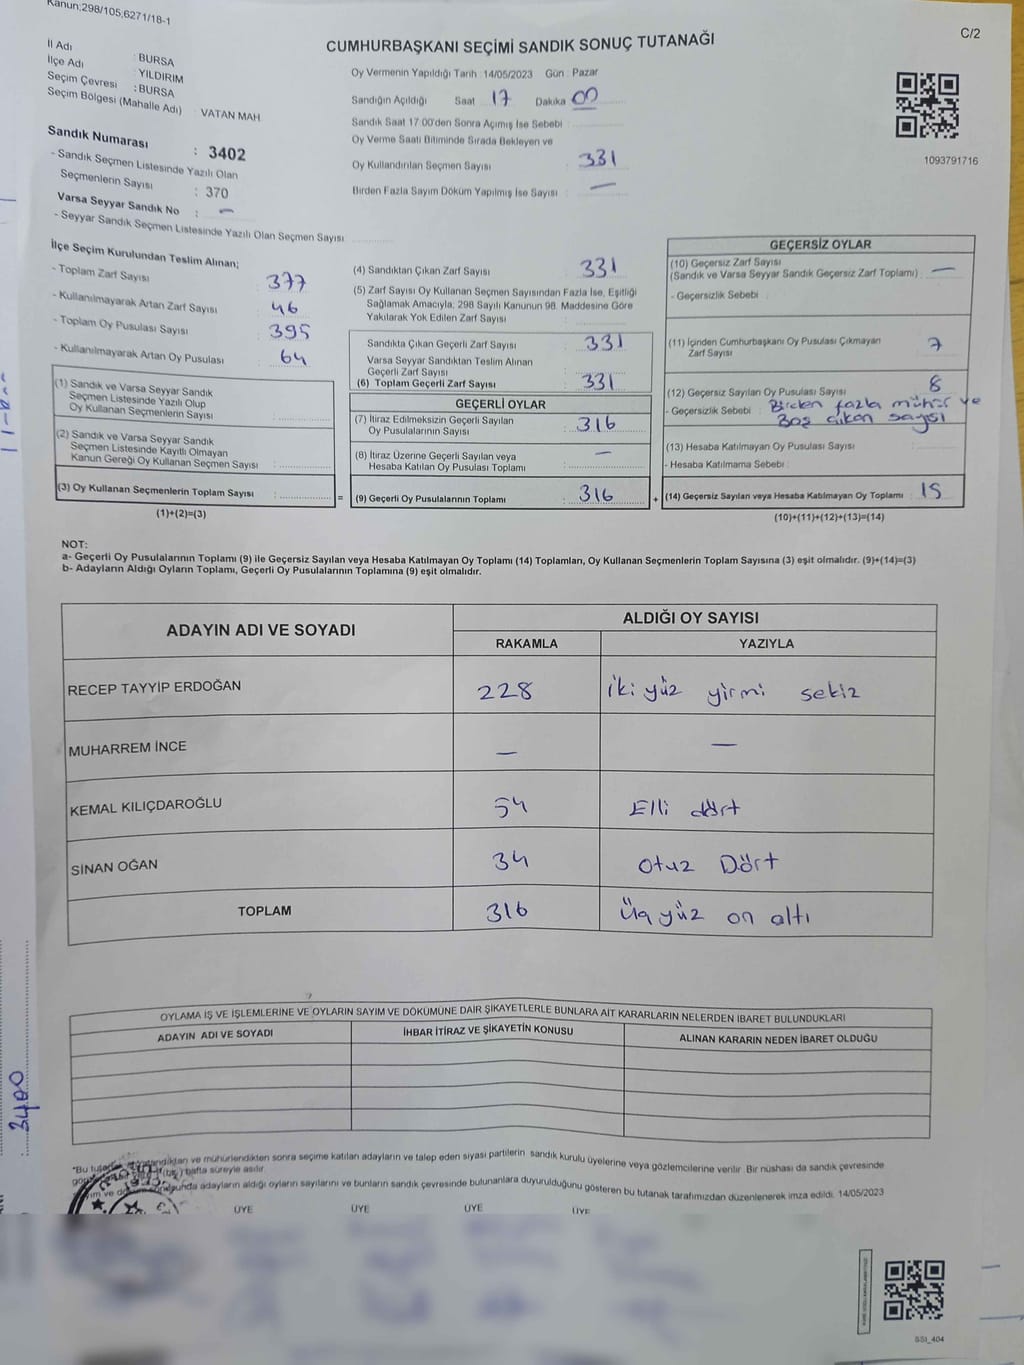 Kanun;298/105;6271/18-1
C/2
CUMHURBAŞKANI SEÇİMİ SANDIK SONUÇ TUTANAĞI
İl Adı : BURSA
İlçe Adı : YILDIRIM
Seçim Çevresi : BURSA
Seçim Bölgesi (Mahalle Adı) : VATAN MAH.
Sandık Numarası : 3402
- Sandık Seçmen Listesinde Yazılı Olan
Seçmenlerin Sayısı : 370
Varsa Seyyar Sandık No : —
- Seyyar Sandık Seçmen Listesinde Yazılı Olan Seçmen Sayısı
Oy Vermenin Yapıldığı Tarih : 14/05/2023 Gün : Pazar
Sandığın Açıldığı Saat 17 Dakika 00
Sandık Saat 17:00'den Sonra Açımış İse Sebebi :
Oy Verme Saati Bitiminde Sırada Bekleyen ve
Oy Kullandırılan Seçmen Sayısı : 331
Birden Fazla Sayım Döküm Yapılmış İse Sayısı : —
1093791716
İlçe Seçim Kurulundan Teslim Alınan;
- Toplam Zarf Sayısı : 377
- Kullanılmayarak Artan Zarf Sayısı : 46
- Toplam Oy Pusulası Sayısı : 395
- Kullanılmayarak Artan Oy Pusulası : 64
(1) Sandık ve Varsa Seyyar Sandık
Seçmen Listesinde Yazılı Olup
Oy Kullanan Seçmenlerin Sayısı :
(2) Sandık ve Varsa Seyyar Sandık
Seçmen Listesinde Kayıtlı Olmayan
Kanun Gereği Oy Kullanan Seçmen Sayısı :
(3) Oy Kullanan Seçmenlerin Toplam Sayısı : =
(1)+(2)=(3)
(4) Sandıktan Çıkan Zarf Sayısı : 331
(5) Zarf Sayısı Oy Kullanan Seçmen Sayısından Fazla İse, Eşitliği
Sağlamak Amacıyla; 298 Sayılı Kanunun 98. Maddesine Göre
Yakılarak Yok Edilen Zarf Sayısı :
Sandıkta Çıkan Geçerli Zarf Sayısı : 331
Varsa Seyyar Sandıktan Teslim Alınan
Geçerli Zarf Sayısı :
(6) Toplam Geçerli Zarf Sayısı : 331
GEÇERLİ OYLAR
(7) İtiraz Edilmeksizin Geçerli Sayılan
Oy Pusulalarının Sayısı : 316
(8) İtiraz Üzerine Geçerli Sayılan veya
Hesaba Katılan Oy Pusulası Toplamı : —
(9) Geçerli Oy Pusulalarının Toplamı : 316 +
GEÇERSİZ OYLAR
(10) Geçersiz Zarf Sayısı
(Sandık ve Varsa Seyyar Sandık Geçersiz Zarf Toplamı) : —
- Geçersizlik Sebebi :
(11) İçinden Cumhurbaşkanı Oy Pusulası Çıkmayan
Zarf Sayısı : 7
(12) Geçersiz Sayılan Oy Pusulası Sayısı : 8
- Geçersizlik Sebebi : Birden fazla mühür ve
Boş çıkan sayısı
(13) Hesaba Katılmayan Oy Pusulası Sayısı :
- Hesaba Katılmama Sebebi :
(14) Geçersiz Sayılan veya Hesaba Katılmayan Oy Toplamı : 15
(10)+(11)+(12)+(13)=(14)
NOT:
a- Geçerli Oy Pusulalarının Toplamı (9) ile Geçersiz Sayılan veya Hesaba Katılmayan Oy Toplamı (14) Toplamları, Oy Kullanan Seçmenlerin Toplam Sayısına (3) eşit olmalıdır. (9)+(14)=(3)
b- Adayların Aldığı Oyların Toplamı, Geçerli Oy Pusulalarının Toplamına (9) eşit olmalıdır.
ADAYIN ADI VE SOYADI
ALDIĞI OY SAYISI
RAKAMLA YAZIYLA
RECEP TAYYİP ERDOĞAN 228 İki yüz yirmi sekiz
MUHARREM İNCE — —
KEMAL KILIÇDAROĞLU 54 Elli dört
SİNAN OĞAN 34 Otuz Dört
TOPLAM 316 Üç yüz on altı
OYLAMA İŞ VE İŞLEMLERİNE VE OYLARIN SAYIM VE DÖKÜMÜNE DAİR ŞİKAYETLERLE BUNLARA AİT KARARLARIN NELERDEN İBARET BULUNDUKLARI
ADAYIN ADI VE SOYADI İHBAR İTİRAZ VE ŞİKAYETİN KONUSU ALINAN KARARIN NEDEN İBARET OLDUĞU
3400
*Bu ve mühürlendikten sonra seçime katılan adayların ve talep eden siyasi partilerin sandık kurulu üyelerine veya gözlemcilerine verilir. Bir nüshası da sandık çevresinde
hafta süreyle asılır.
adayların aldığı oyların sayılarını ve bunların sandık çevresinde bulunanlara duyurulduğunu gösteren bu tutanak tarafımızdan düzenlenerek imza edildi. 14/05/2023
ÜYE ÜYE ÜYE ÜYE
SSI_404